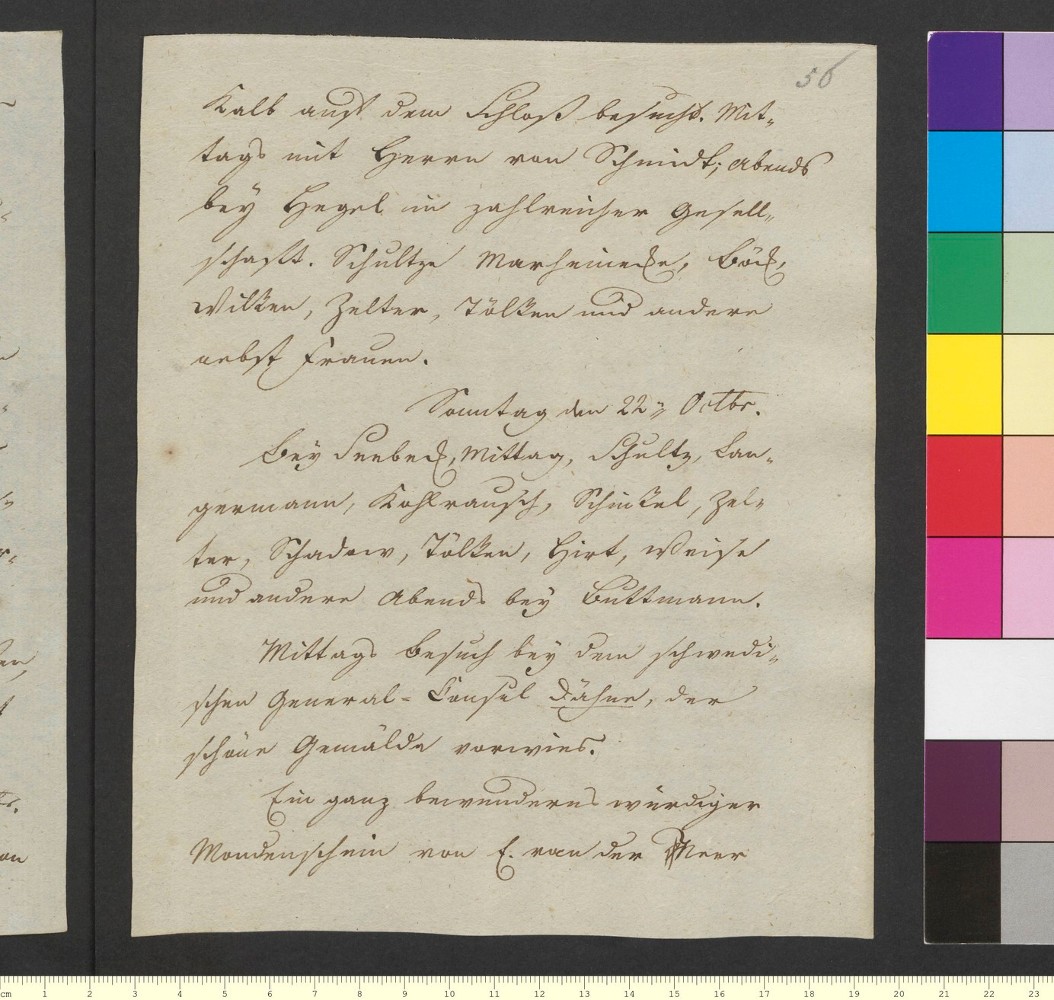 56
Kalb auf dem Schloß besucht. Mit-
tags mit Herrn von Schmidt; Abends
bey Hegel in zahlreicher Gesell-
schaft. Schultze Marheinecke, Böck,
Wilken, Zelter, Tölken und andere
nebst Frauen.
Sonntag den 22n Octbr.
Bey Seebeck, Mittag, Schultz, Lan-
germann, Kohlrausch, Schinkel, Zel-
ter, Schadow, Tölken, Hirt, Weise
und andere Abends bey Buttmann.
Mittags Besuch bey dem schwedi-
schen General-Consul Dähne, der
schöne Gemälde vorwies.
Ein ganz bewunderns würdiger
Mondenschein von E. van der Meer